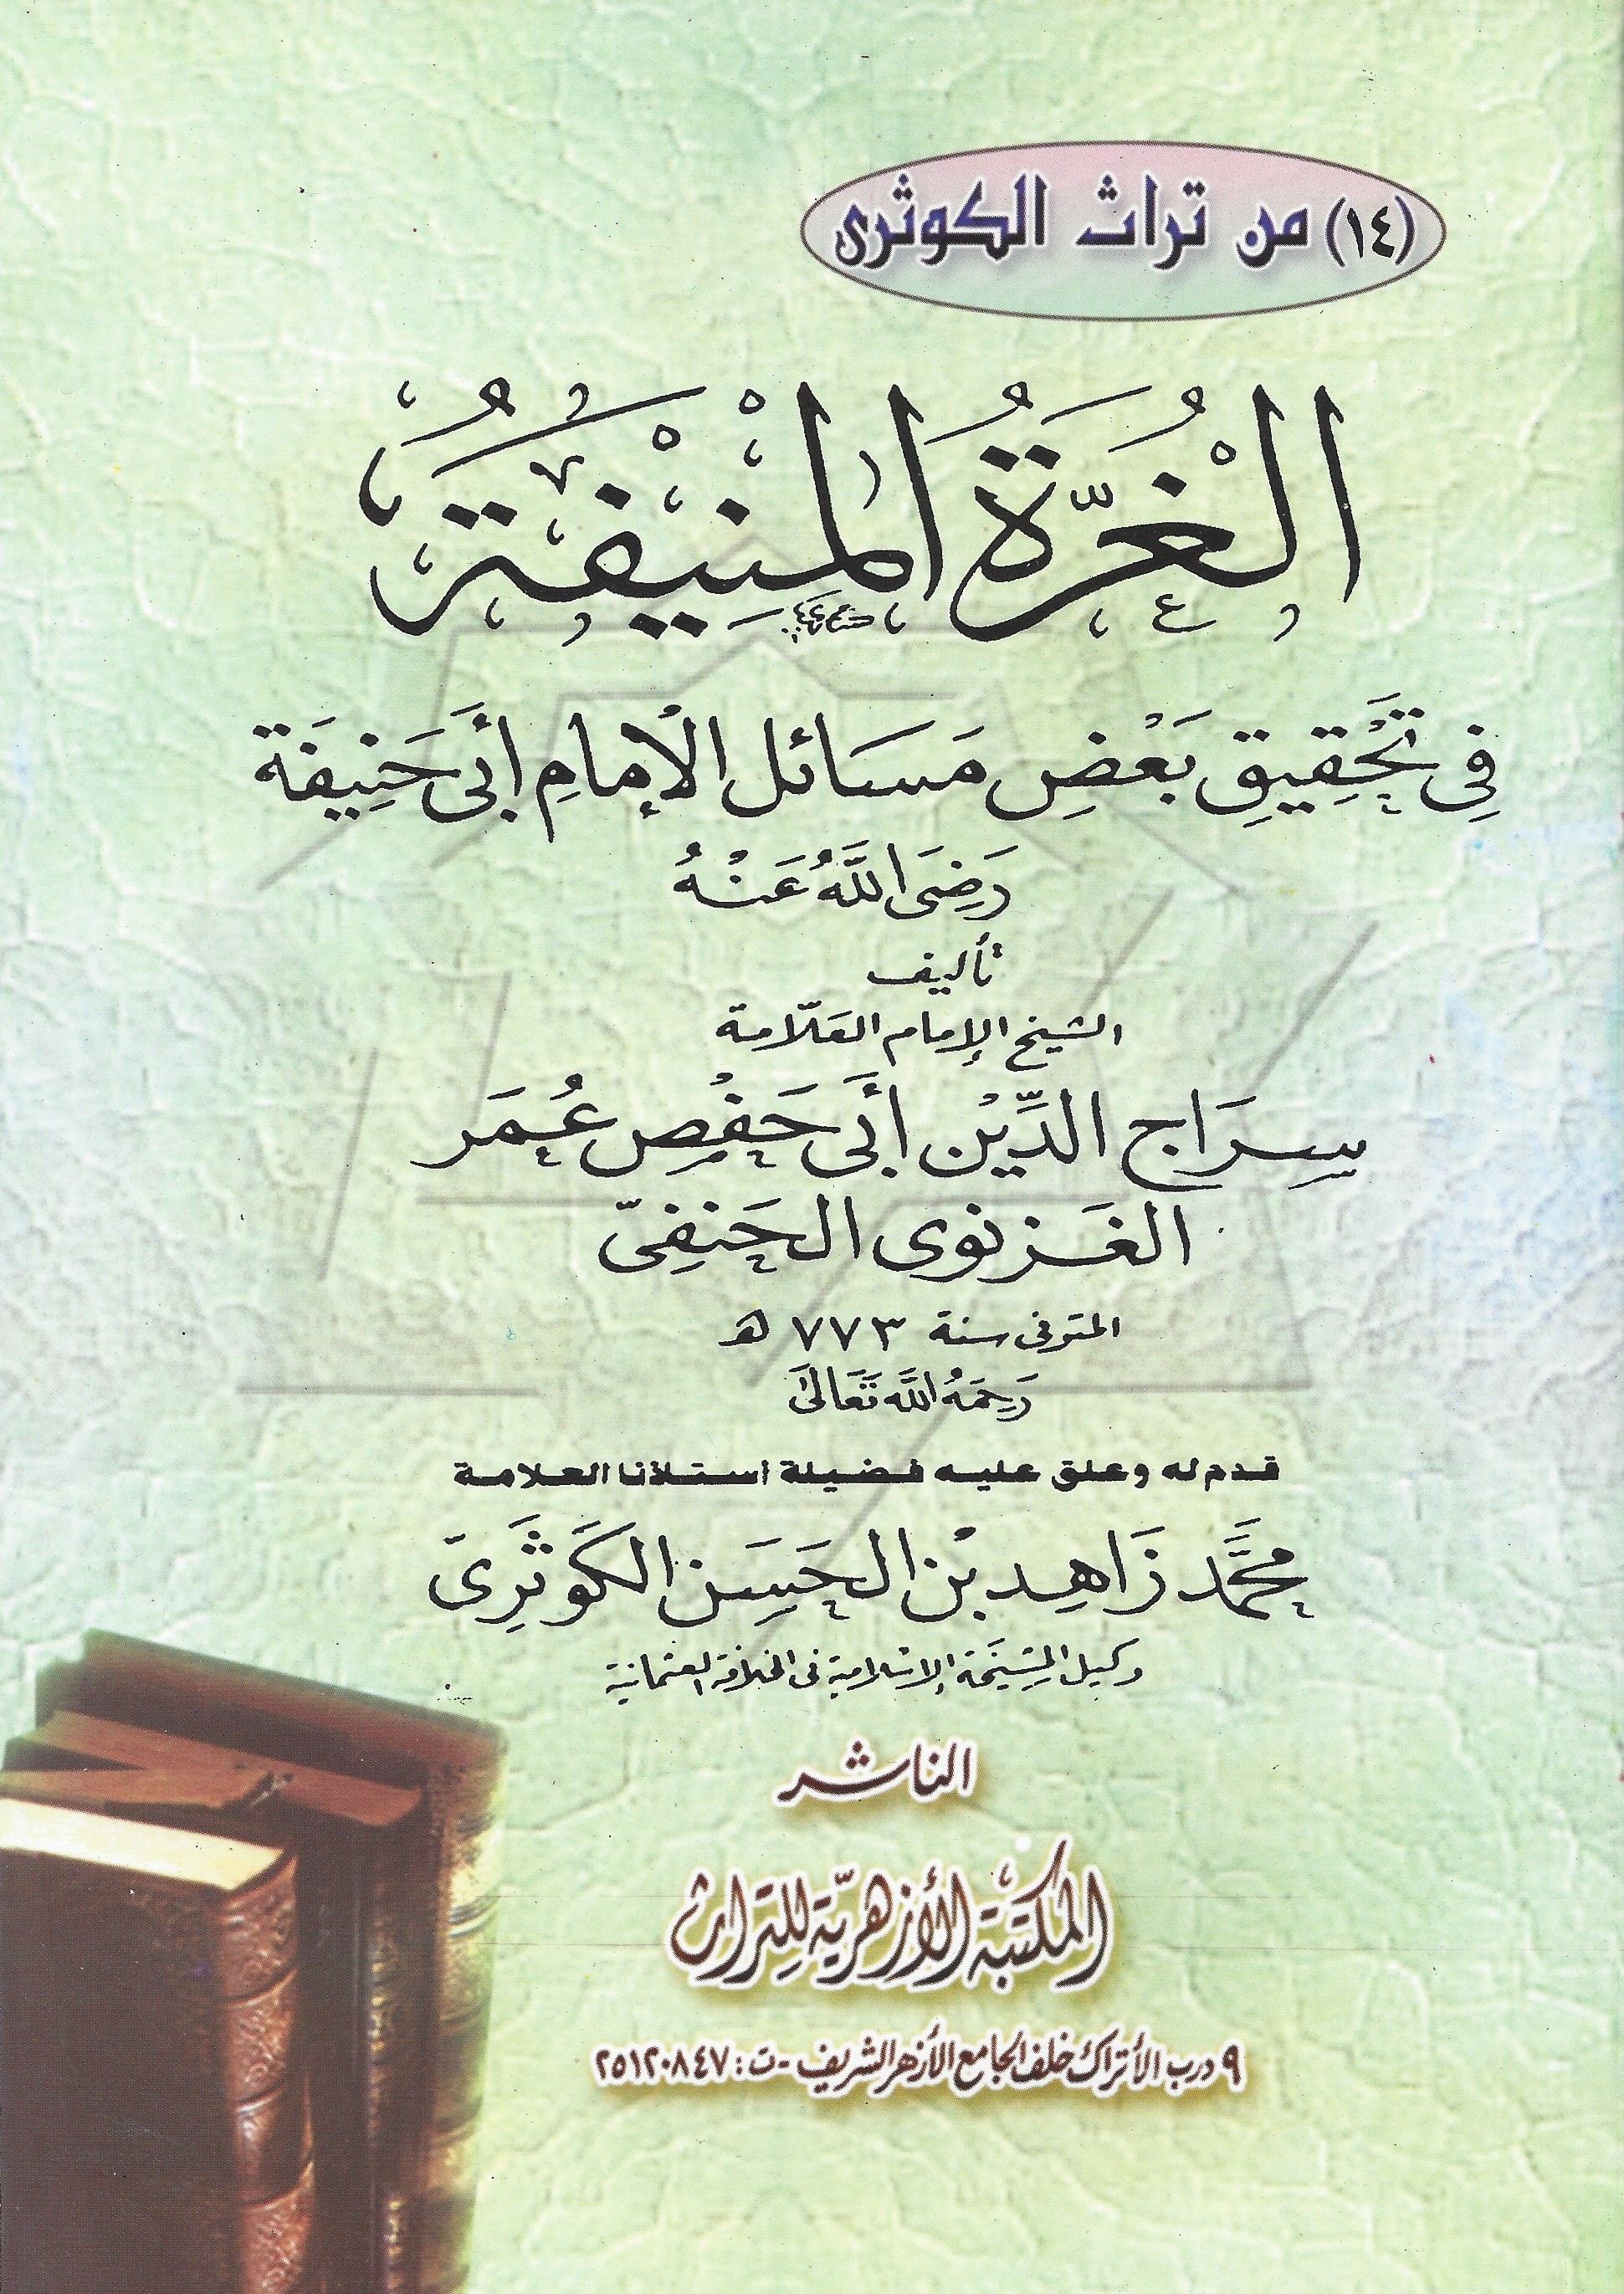 (١٤) من تراث الكوثرى
الْغُرَّةُ الْمُنِيْفَةُ
فِى تَحْقِيقِ بَعْضِ مَسَائل الْإمامِ أبَى حَنِيفَة
رَضِىَ اللَّهُ عَنْهُ
تأليف
الشيخ الإمام العَلّامة
سِرَاج الدِّيْن أبَى حَفْصِ عُمَر
الغَزنوى الحَنفِىّ
المتوفى سنة ٧٧٣ هـ
رَحِمَهُ اللَّه تَعَالَى
قدم له وعلق عليه فضيلة استاذنا العلامة
محمَّد زَاهِد بْن الحَسَن الكَوثَرِىّ
وكيل المشيَخَة الإسلامية فى الخلافة العثمانية
الناشر
المكتبة الأزهريّة للتراث
٩ درب الأتراك خلف الجامع الأزهر الشريف - ت: ٢٥١٢٠٨٤٧